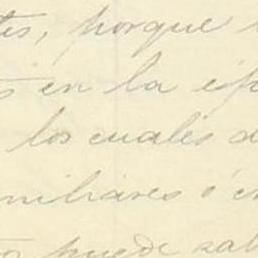 tes, porque
s en la ép
los cuales d
miliares ó e
puede sal